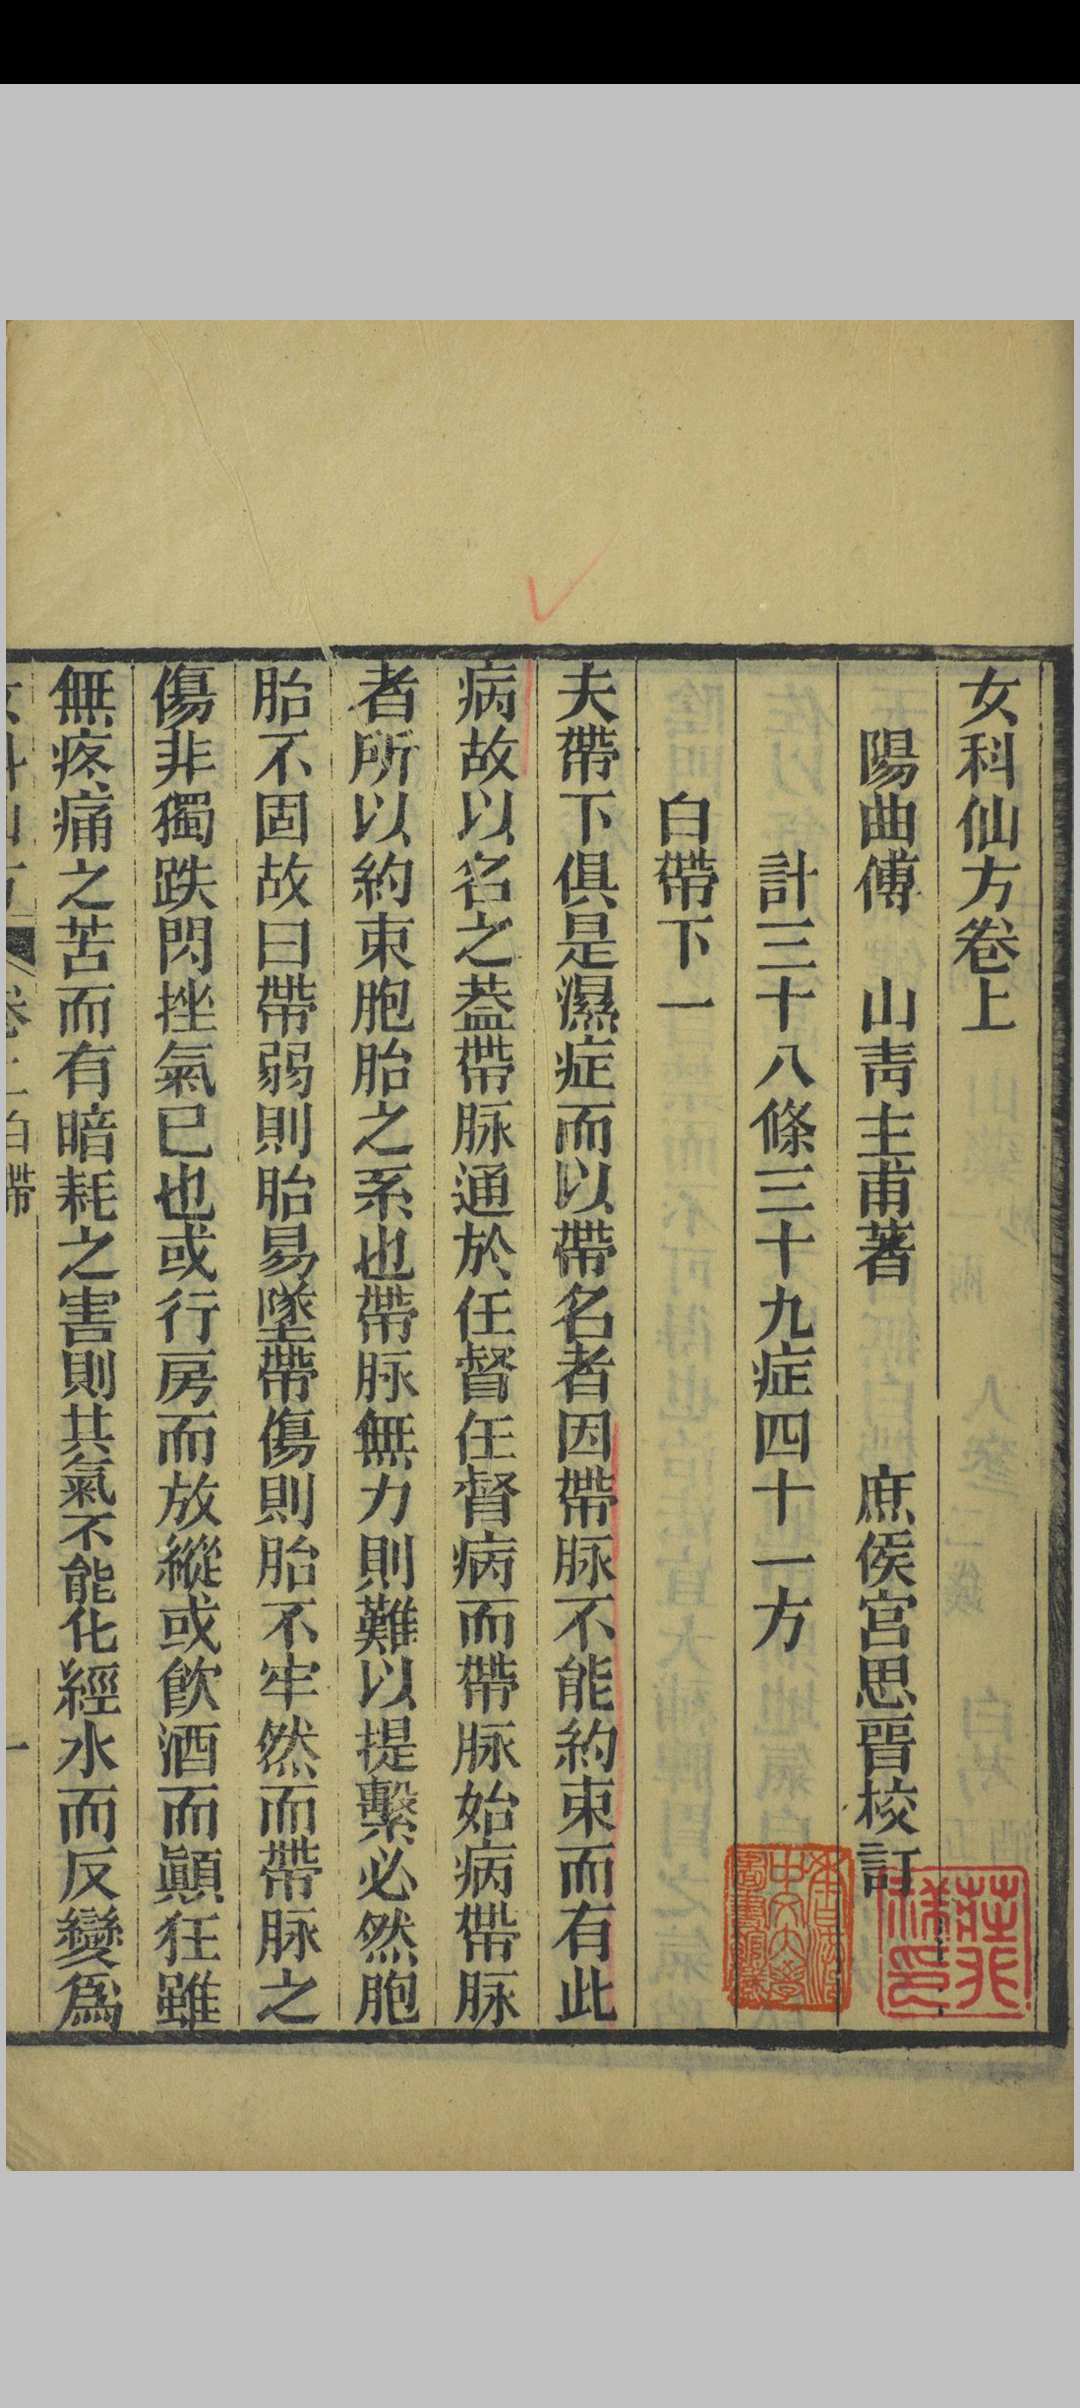 女科仙方卷上
陽曲傅　山青主甫著　庶侯宮思晉校訂
計三十八條三十九症四十一方
白帶下一
夫帶下俱是濕症而以帶名者因帶脉不能約束而有此
病故以名之葢帶脉通於任督任督病而帶脉始病帶脉
者所以約束胞胎之系也帶脉無力則難以提繫必然胞
胎不固故曰帶弱則胎易墜帶傷則胎不牢然而帶脉之
傷非獨跌閃挫氣已也或行房而放縱或飲酒而顚狂雖
無疼痛之苦而有暗耗之害則其氣不能化經水而反變爲